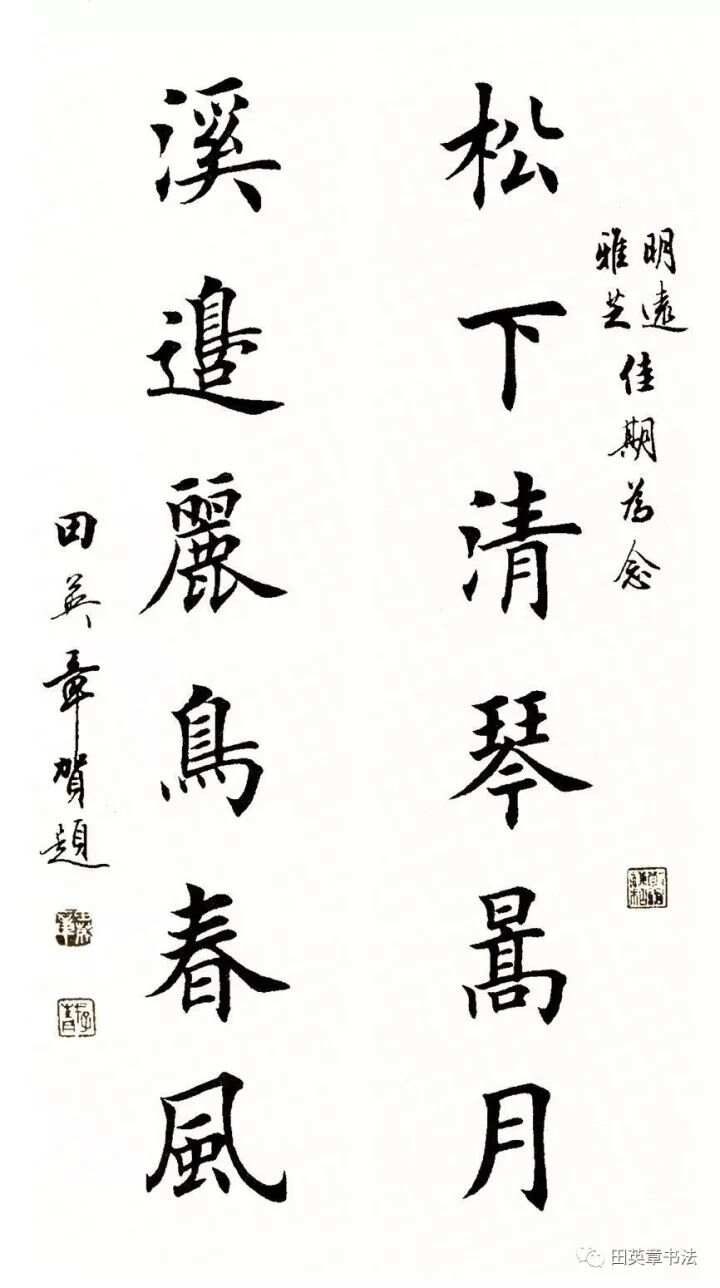 明遠
雅芝
佳期為念
松下清琴暠月
溪邊麗鳥春風
田英章賀題
田英章书法